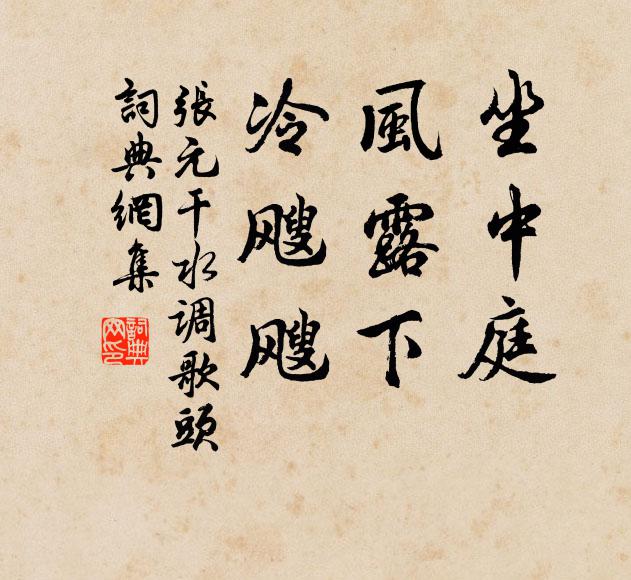 坐中庭
風露下
冷飕飕
張元干水调歌頭
詞典網集
詞典
网印